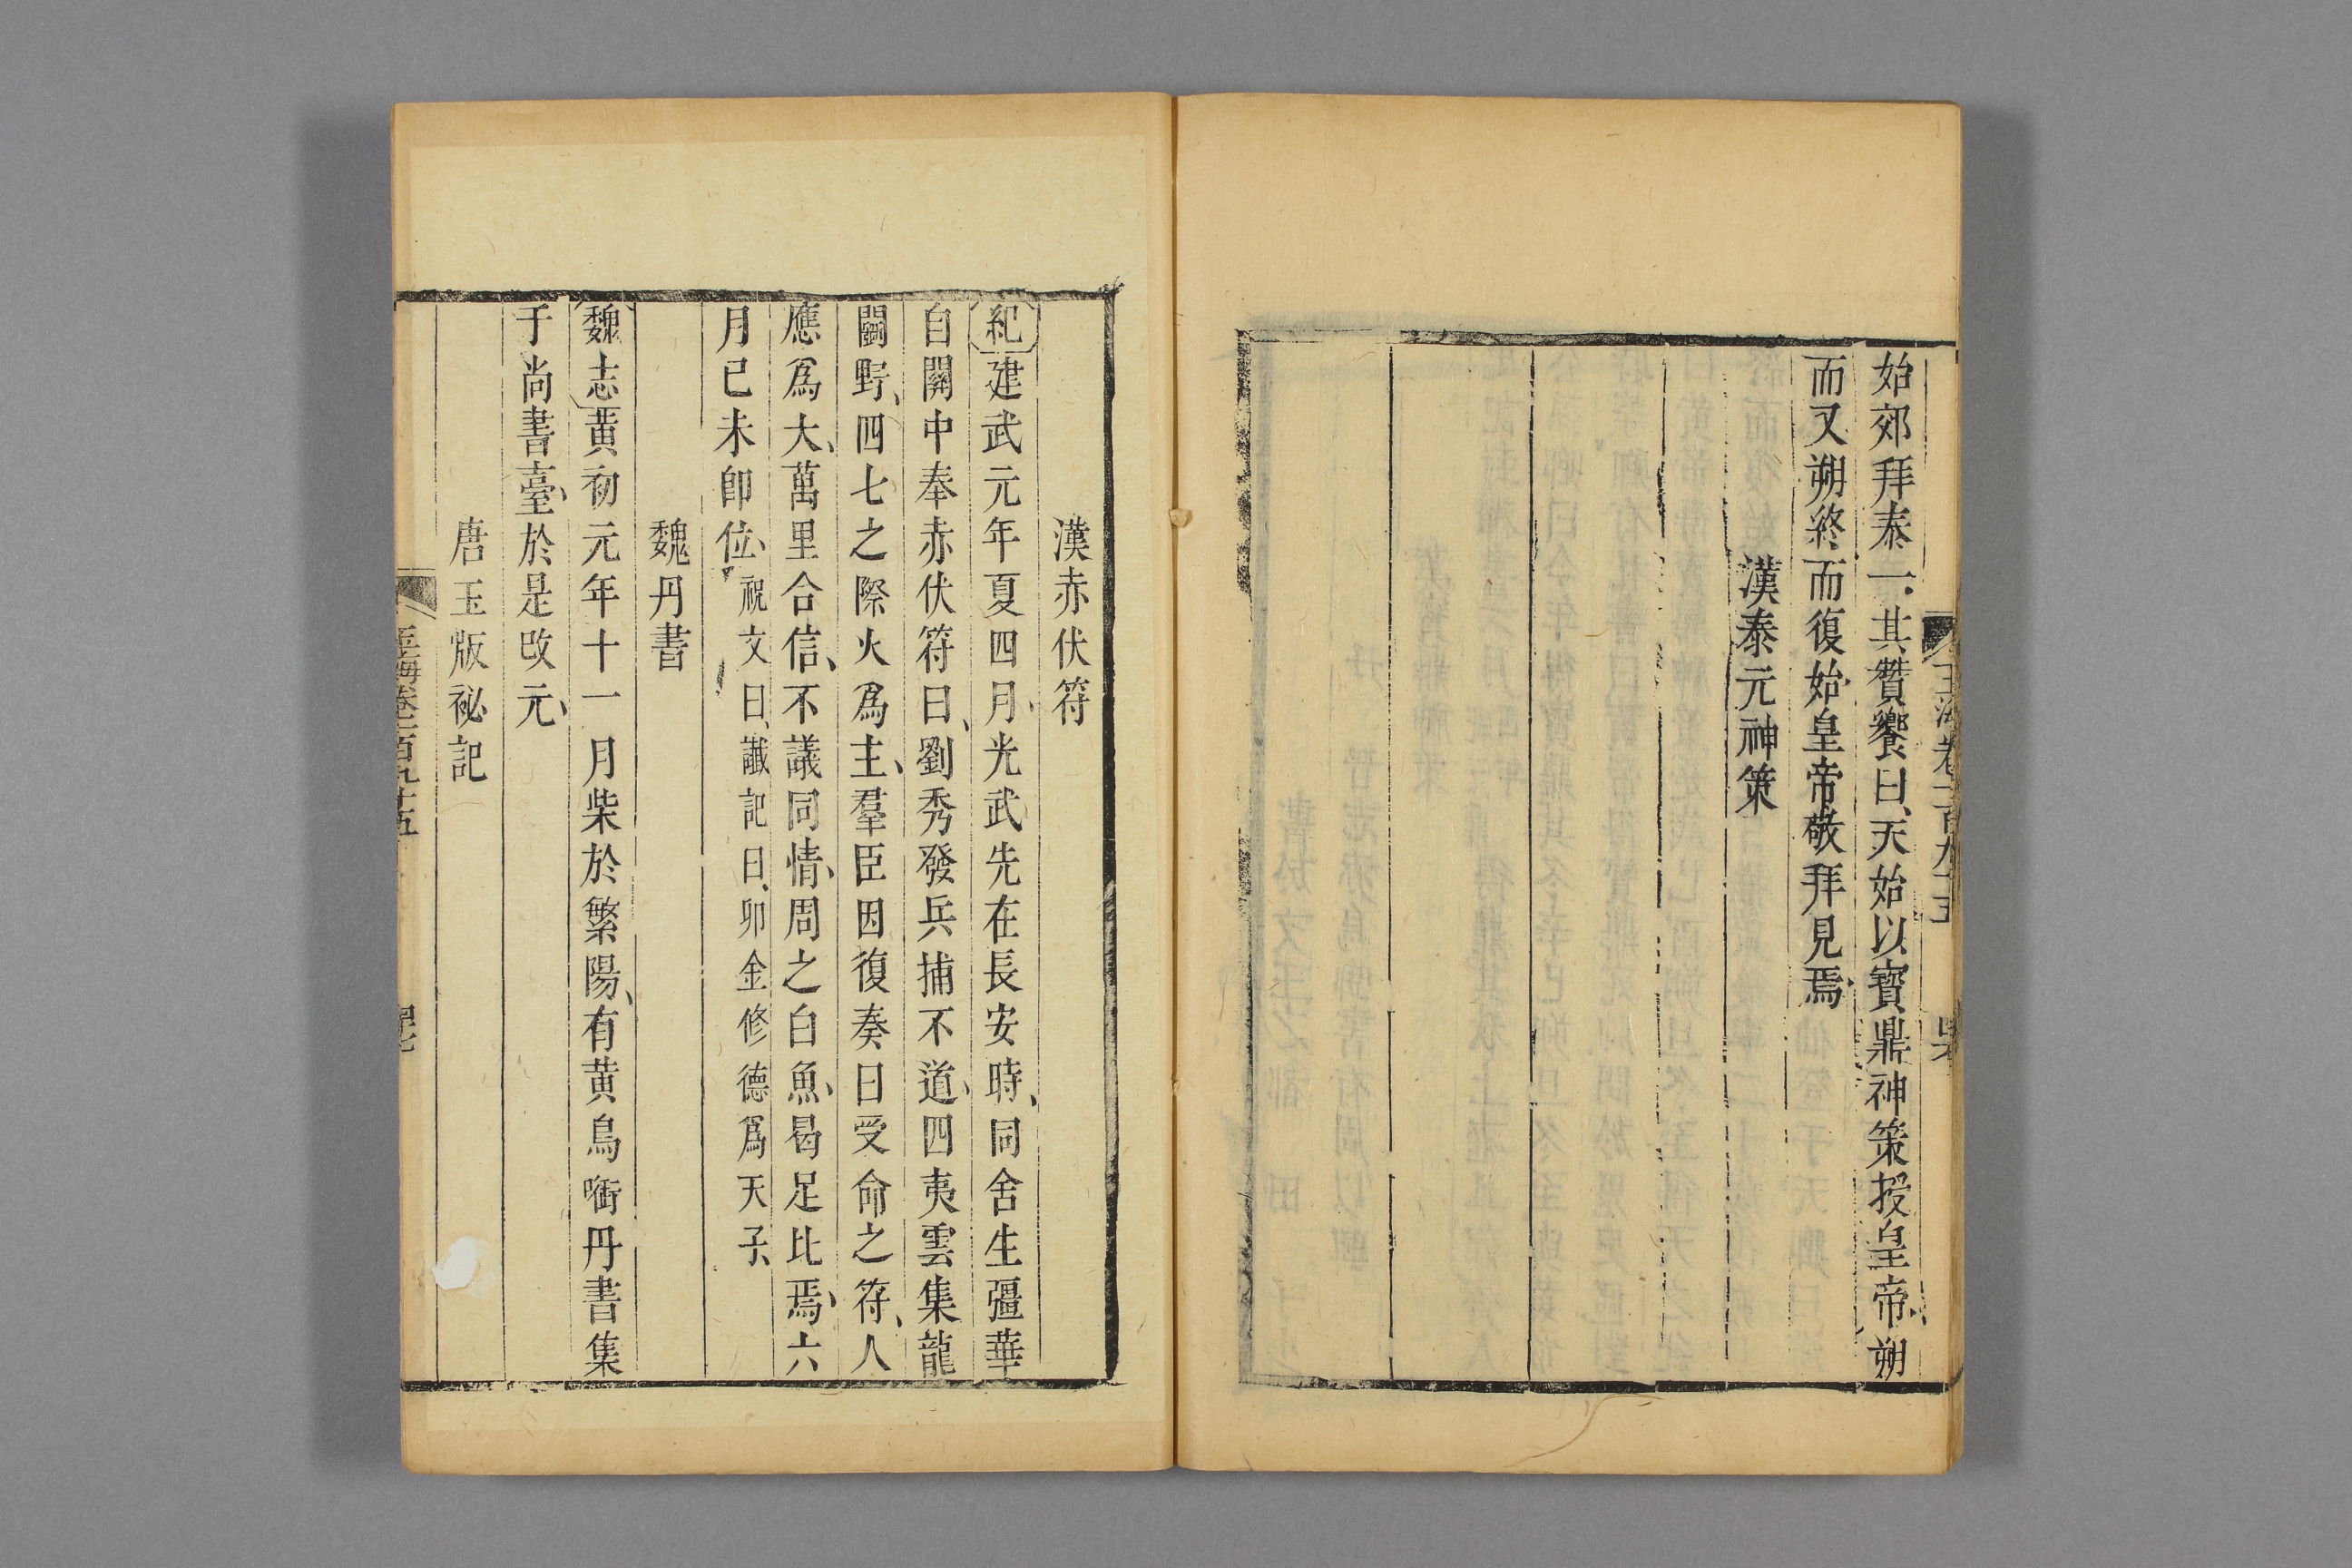 始郊拜泰一其贊饗曰天始以寶鼎神策授皇帝朔
而又朔終而復始皇帝敬拜見焉
漢泰元神策
漢赤伏符
紀建武元年夏四月光武先在長安時同舍生彊華
自關中奉赤伏符曰劉秀發兵捕不道四夷雲集龍
鬭野四七之際火爲主羣臣因復奏曰受命之符人
應爲大萬里合信不議同情周之白魚曷足比焉六
月己未卽位祝文曰讖記曰卯金修德爲天子
魏丹書
魏志黃初元年十一月柴於繁陽有黃鳥銜丹書集
于尚書臺於是改元
唐玉版祕記
玉海卷一百九十五